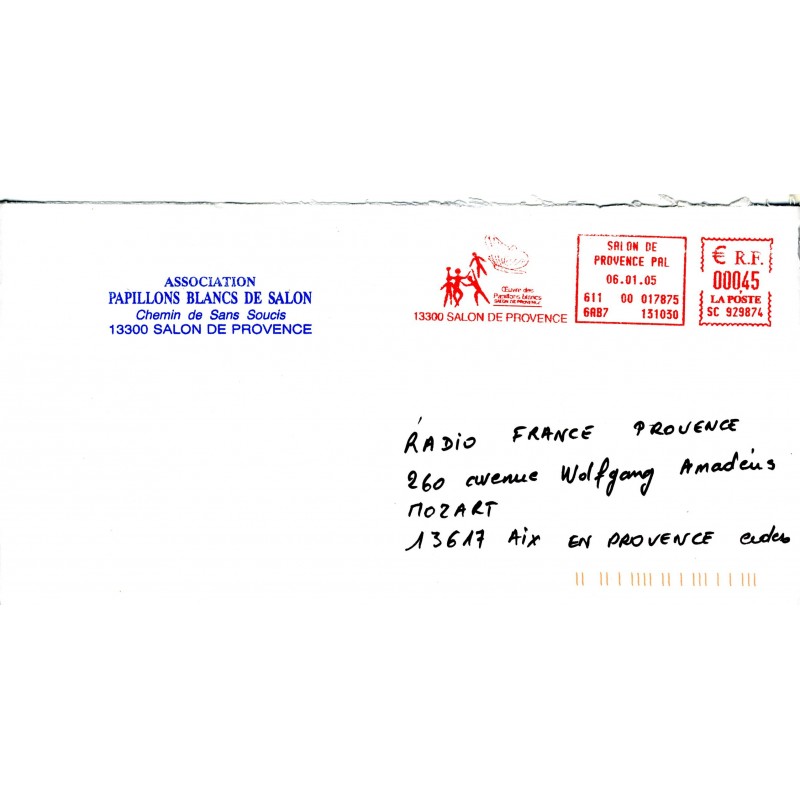 ASSOCIATION
PAPILLONS BLANCS DE SALON
Chemin de Sans Soucis
13300 SALON DE PROVENCE
Œuvre des
Papillons blancs
SALON DE PROVENCE
13300 SALON DE PROVENCE
SALON DE
PROVENCE PAL
06.01.05
611 00 017875
6AB7 131030
€ R.F.
00045
LA POSTE
SC 929874
RADIO FRANCE PROVENCE
260 avenue Wolfgang Amadéus
MOZART
13617 Aix EN PROVENCE cedex